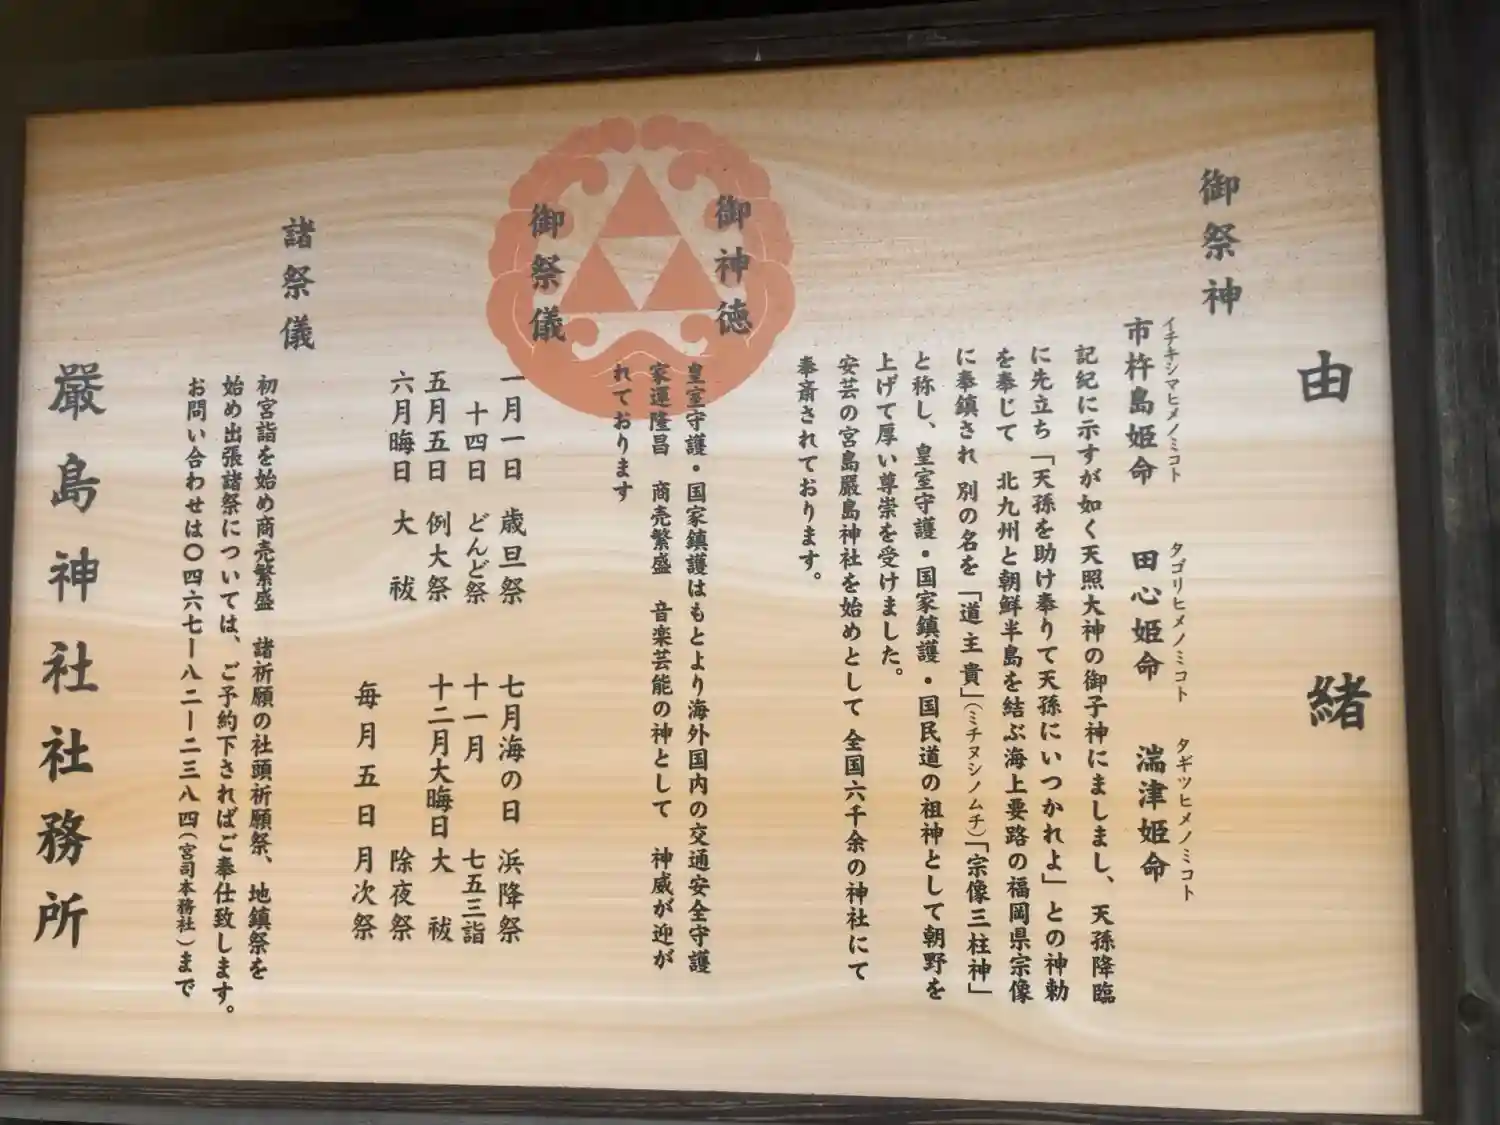 由緒
御祭神
イチキシマヒメノミコト タゴリヒメノミコト タギツヒメノミコト
市杵島姫命 田心姫命 湍津姫命
記紀に示すが如く天照大神の御子神にましまし、天孫降臨
に先立ち「天孫を助け奉りて天孫にいつかれよ」との神勅
を奉じて 北九州と朝鮮半島を結ぶ海上要路の福岡県宗像
に奉鎮され 別の名を「道主貴」(ミチヌシノムチ)「宗像三柱神」
と称し、皇室守護・国家鎮護・国民道の祖神として朝野を
上げて厚い尊崇を受けました。
安芸の宮島厳島神社を始めとして 全国六千余の神社にて
奉斎されております。
御神徳
皇室守護・国家鎮護はもとより海外国内の交通安全守護
家運隆昌 商売繁盛 音楽芸能の神として 神威が迎が
れております
御祭儀
一月一日 歳旦祭 七月海の日 浜降祭
十四日 どんど祭 十一月 七五三詣
五月五日 例大祭 十二月大晦日 大祓
六月晦日 大祓 除夜祭
毎月五日 月次祭
諸祭儀
初宮詣を始め商売繁盛 諸祈願の社頭祈願祭、地鎮祭を
始め出張諸祭については、ご予約下さればご奉仕致します。
お問い合わせは〇四六七ー八二ー二三八四(宮司本務社)まで
厳島神社社務所